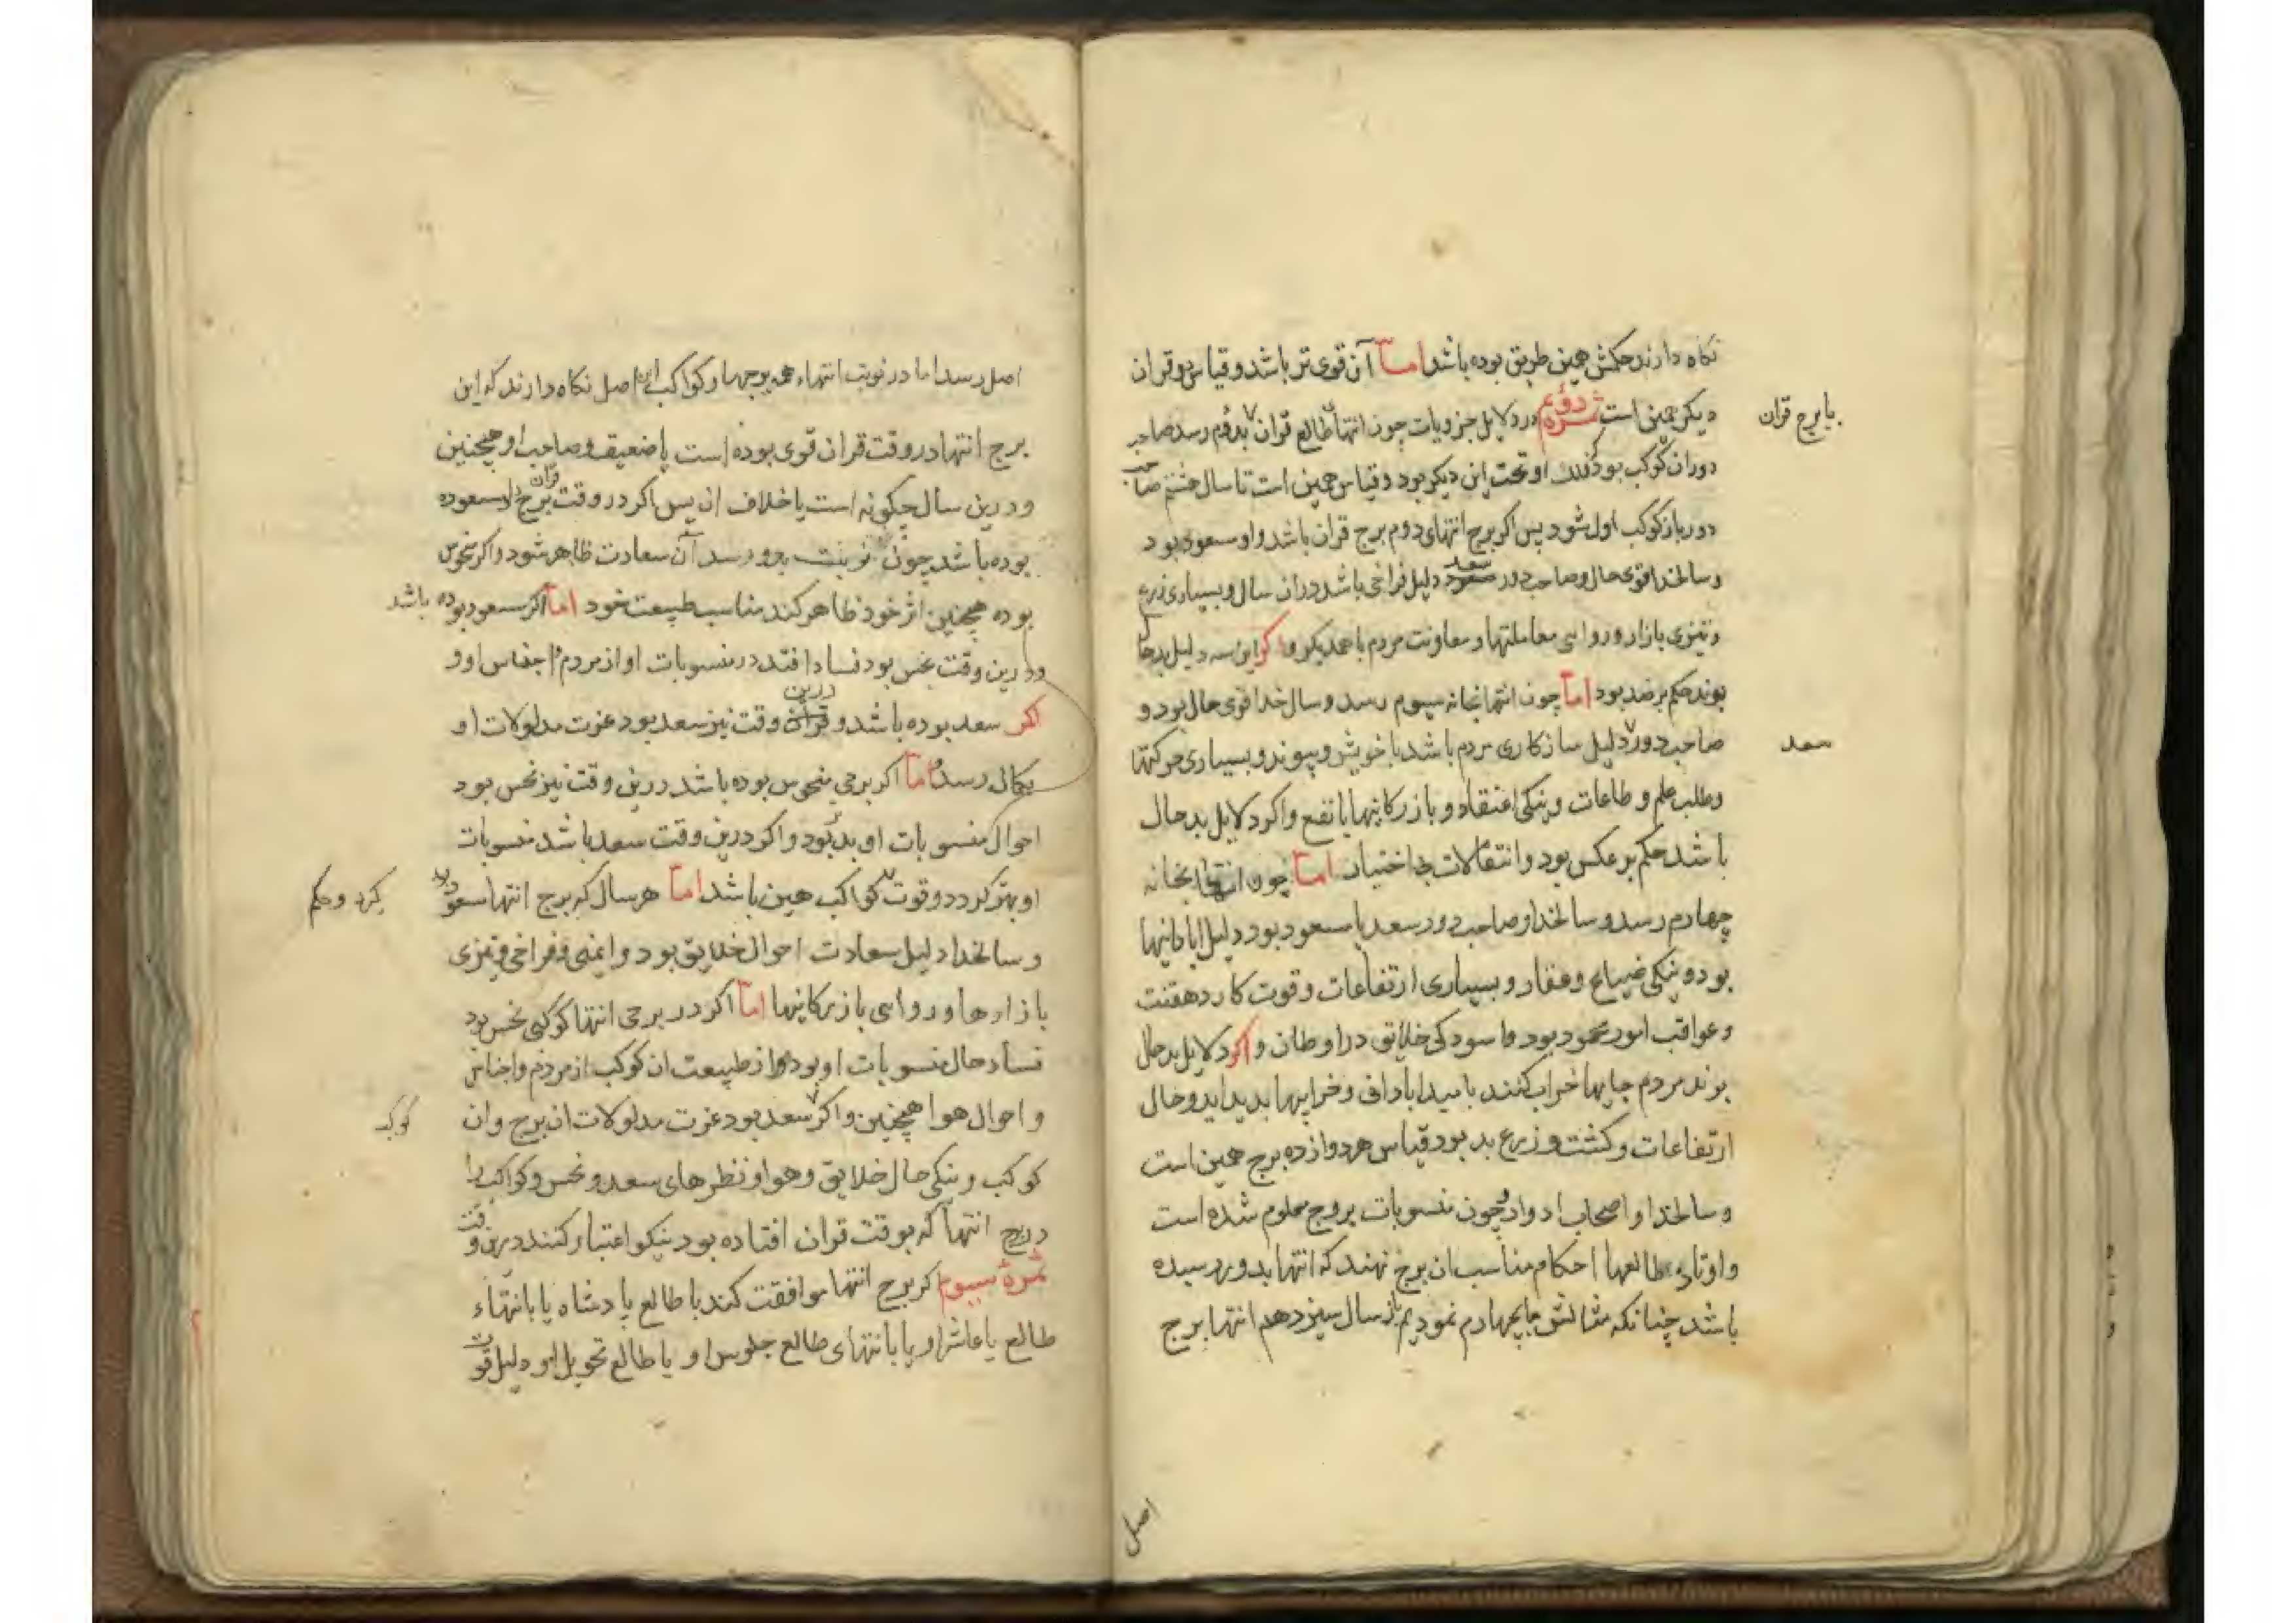 نکاه دارند حکمش همین طریق بوده باشد اما آن قوی تر باشد و قیاس دو قران
دیکر همین است ثمره دوم در دلایل جزویات چون انتها طالع قران بدوم رسد صاحب
یا برج قران
دوران کوکب بود که فلک او تحت این دیکر بود و قیاس همین است تا سال هشتم صاحب
دور باز کوکب اول شود پس اکر برج انتهای دوم برج قران باشد و او سعود بود
و سالخدا قوی حال و صاحب دور سعد دلیل فراخی باشد دران سال و بسیاری زرع
و تیزی بازار و روایی معاملتها و معاونت مردم با همدیکر و اکر این سه دلیل بدحال
بوند حکم بر ضد بود اما چون انتها بخانه سیوم رسد و سال خدا قوی حال بود و
صاحب دور دلیل سازکاری مردم باشد با خویش و پیوند و بسیاری حرکتها
سعد
و طلب علم و طاعات و نیکی اعتقاد و بازرکانیها با نفع و اکر دلایل بدحال
باشد حکم بر عکس بود و انتقالات بی اختیار اما چون انتها بخانه
چهارم رسد و سالخدا و صاحب دور سعد یا مسعود بود دلیل ابادانیها
بود و نیکی ضیاع و عقار و بسیاری ارتفاعات و قوت کار دهقنت
و عواقب امور محمود بود و اسودکی خلایق در اوطان و اکر دلایل بدحال
بوند مردم جایها خراب کنند بامید ابادانی و خرابیها بدید اید و حال
ارتفاعات و کشت و زرع بد بود قیاس هر دوازده برج همین است
و سالخدا و اصحاب ادوار چون منسوبات بروج معلوم شده است
و اوتاد طالعها احکام مناسب ان برج نهند که انتها بدو رسیده
باشد چنانکه مثالش بچهارم نمودیم باز سال سیزدهم انتها برج
اصل
اصل رسد اما در نوبت انتهاء همه برجها و کواکب این اصل نکاه دارند که این
برج انتها در وقت قران قوی بوده است یا ضعیف و صاحب او همچنین
و درین سال چکونه است یا خلاف ان پس اکر در وقت قران برج سعود
بوده باشد چون نوبت بدو رسد آن سعادت ظاهر شود و اکر نحوس
بوده همچنین اثر خود ظاهر کند مناسب طبیعت خود اما اکر سعود بوده باشد
و درین وقت نحس بود فساد افتد در منسوبات او از مردم و اجناس او و
اکر سعد بوده باشد و درین وقت نیز سعد بود عزت مدلولات او
بکمال رسد و اما اکر برجی منحوس بوده باشد درین وقت نیز نحس بود
احوال منسوبات او بد بود و اکر درین وقت سعد باشد منسوبات
او بهتر کردد و قوت کواکب همین باشد اما هر سال که برج انتها سعود بود
کیرد و حکم
و سالخدا دلیل سعادت احوال خلایق بود و ایمنی و فراخی و تیزی
بازارها و روایی بازرکانیها اما اکر در برجی انتها کوکبی نحس بود
فساد حال منسوبات او بود و از طبیعت ان کوکب از مردم و اجناس
و احوال هوا همچنین و اکر سعد بود عزت مدلولات ان برج و ان
کوکب
کوکب و نیکی حال خلایق و هوا و نظرهای سعد و نحس و کواکب را
در برج انتها که بوقت قران افتاده بود نیکو اعتبار کنند درین وقت
ثمره سیوم اکر برج انتها موافقت کند با طالع پادشاه یا با انتهاء
طالع یا عاشر او یا با انتهای طالع جلوس او یا طالع تحویل او دلیل قوت